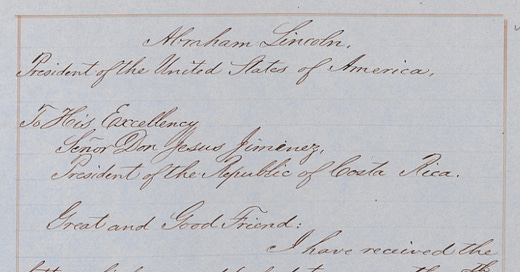 Abraham Lincoln,
President of the United States of America,
To His Excellency
Señor Don Jesus Jimenez,
President of the Republic of Costa Rica.
Great and Good Friend:
I have received the